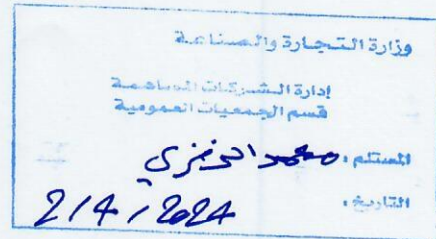 وزارة التجارة والصناعة
إدارة الشركات المساهمة
قسم الجمعيات العمومية
المستلم: محمد العنزي
التاريخ: 2/4/2024